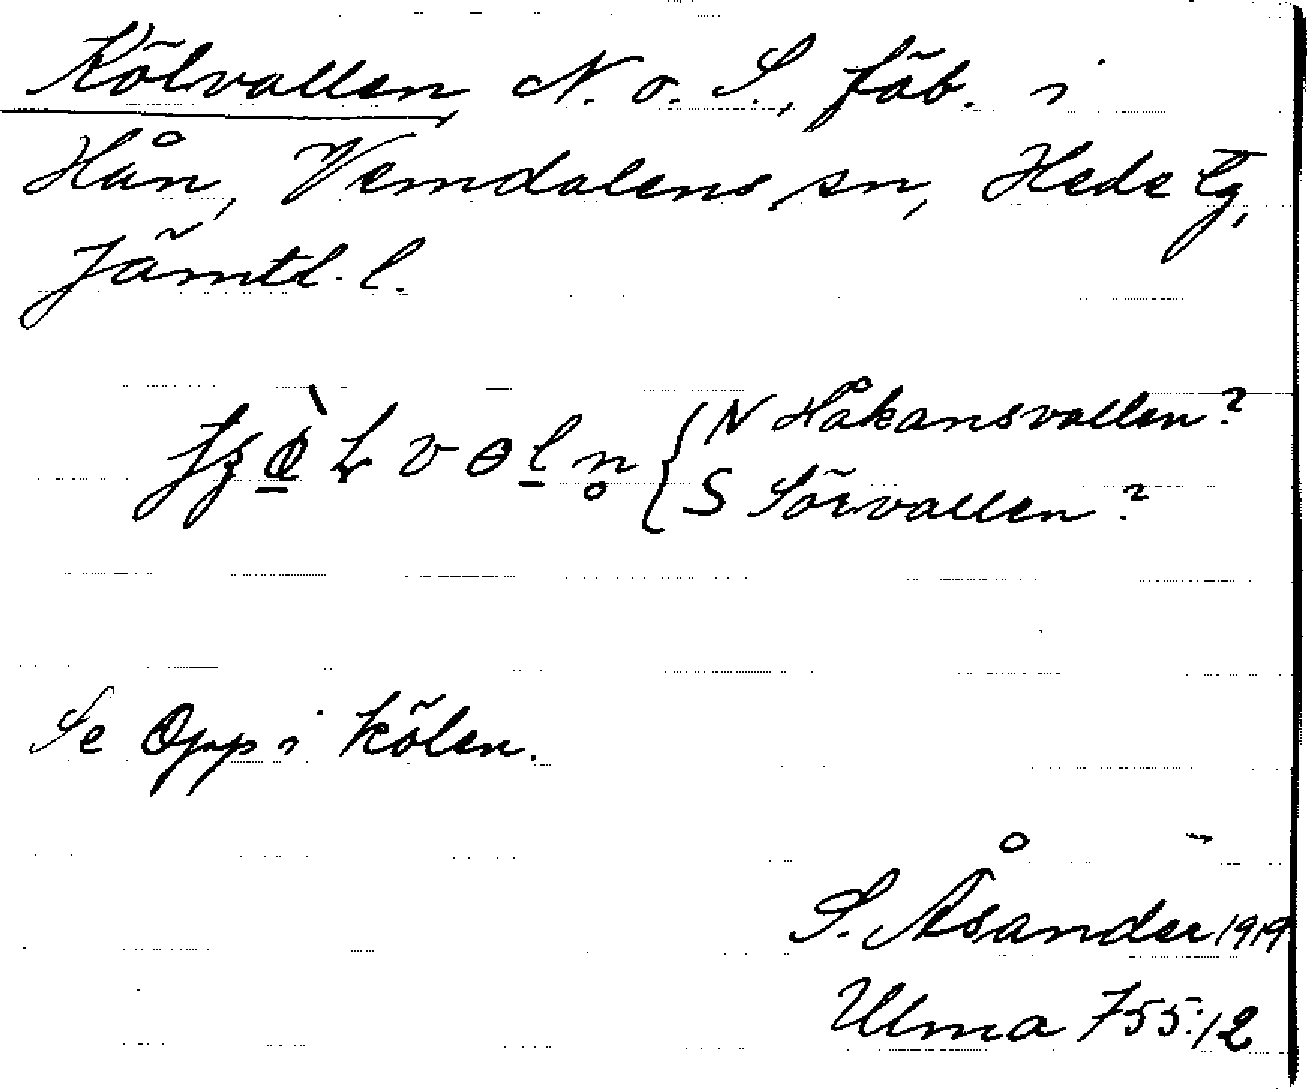 Kölvallen, N. o. S., fäb. i
Hån, Vemdalens sn, Hede tg,
Jämtl. l.
N Håkansvallen?
S Sörvallen?
Se Opp i kölen.
S. Åsander 1919
Ulma 755:12